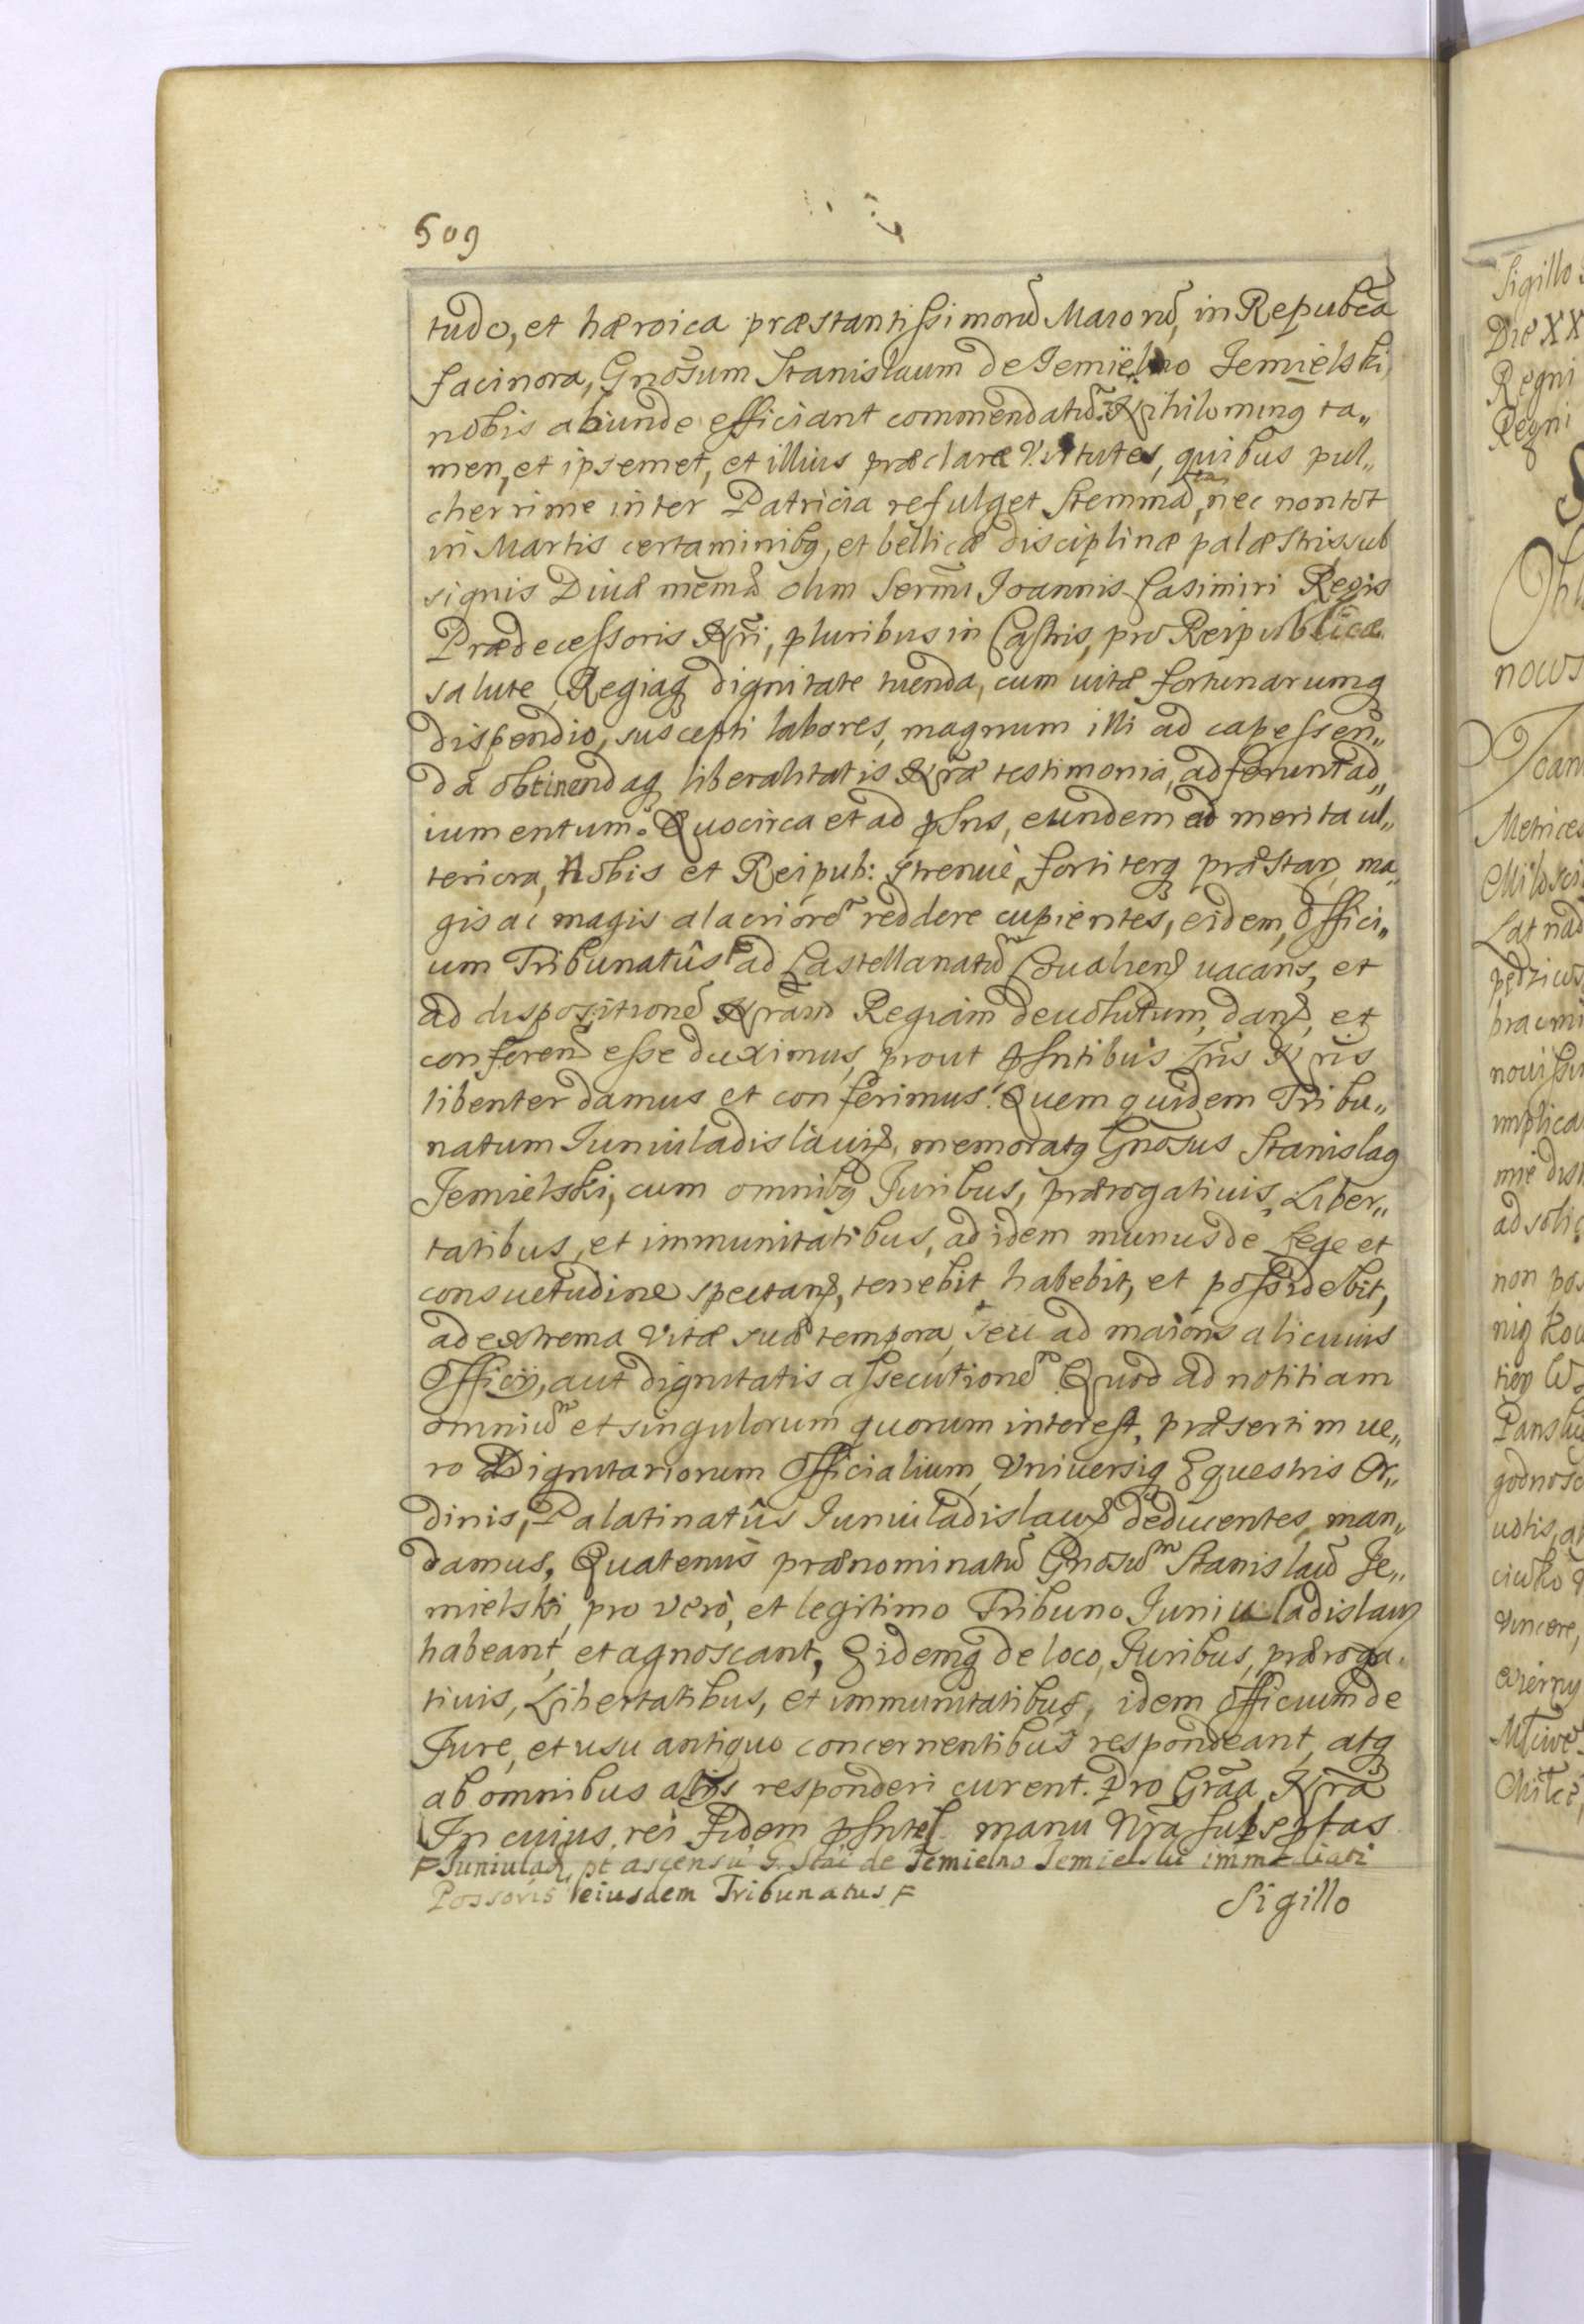 509
tudo, et hæroica præstantissimorũ Maiorũ, in Republ̃ca
facinora, Gnõsum Stanislaum de Jemielno Jemielski,
nobis abunde efficiant commendatũ. Nihilominq ta„
men, et ipsemet, et illius præclaræ Virtutes, quibus pul„
cherrime inter Patricia refulget Stemmata, nec non tot
in Martis certaminibq, et bellicæ disciplinæ palæstris sub
signis Diuæ mem̃æ olim Serm̃i Joannis Casimiri Regis
Prædecessoris Nr̃i, pluribus in Castris, pro Reipublicæ
salute, Regiaq dignitate tuenda, cum uitæ fortunarumq
dispendio, suscepti labores, magnum illi ad capessen„
da obtinendaq liberalitatis Nr̃æ testimonia, adferunt ad„
iumentum. Quocirca et ad pñs, eundem ad merita ul„
teriora, Nobis et Reipub: strenuè, fortiterq præstan, ma„
gis ac magis alacriorẽ reddere cupientes, eidem, Offici„
um Tribunatûs F ad Castellanatũ Coualien uacans, et
ad dispositionẽ Nr̃am Regiam deuolutum, dan, et
conferen esse duximus, prout pñtibus Lr̃is Nr̃is
libenter damus et conferimus. Quem quidem Tribu„
natum Juniuladislauien, memoratq Gnõsus Stanislaq
Jemielski, cum omnibq Juribus, prærogatiuis, Liber„
tatibus, et immunitatibus, ad idem munus de Lege et
consuetudine spectan, tenebit habebit, et possidebit,
ad extrema Vitæ suæ tempora, seu ad maioris alicuius
Officij, aut dignitatis assecutionẽ. Quod ad notitiam
omniũ et singulorum quorum interest, præsertim ue„
ro Dignitariorum Officialium, Vniuersiq Equestris Or„
dinis, Palatinatûs Juniuladislauien deducentes, man„
damus, Quatenus prænominatũ Gnõsũ Stanislaũ Je„
mielski, pro vero, et legitimo Tribuno Juniuladislauien
habeant, et agnoscant, Eidemq de loco, Juribus, præroga„
tiuis, Libertatibus, et immunitatibus, idem officium de
Jure, et usu antiquo concernentibus respondeant, atq
ab omnibus alijs responderi curent. Pro Grãa Nr̃a
In cuius rei fidem pñtes manu Nr̃a subscptas
F Juniulad, pt ascensũ G. Stai de Jemielno Jemielski immediati
Possoris eiusdem Tribunatus F
Sigillo